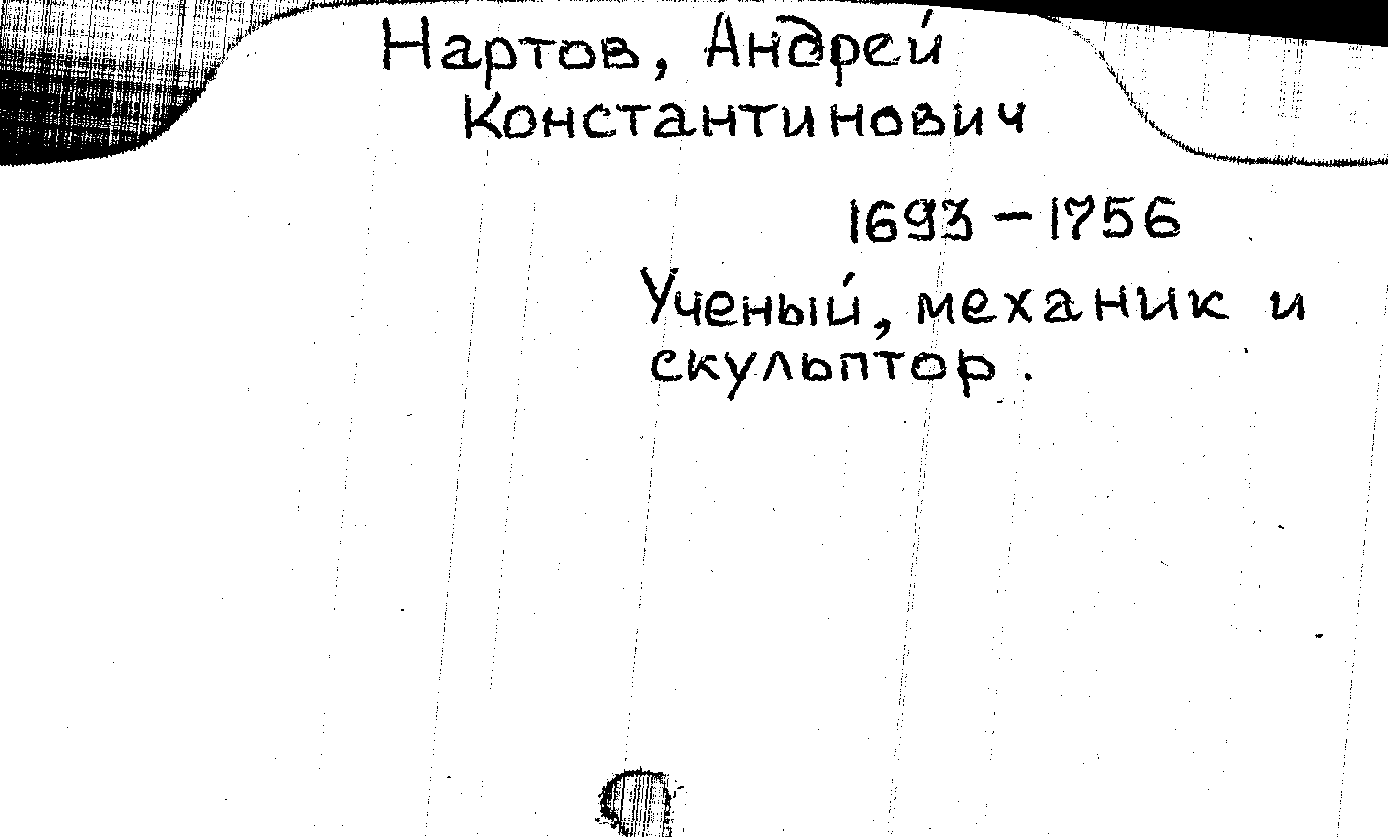 Нартов, Андрей
Константинович
1693 – 1756
Ученый, механик и
скульптор.